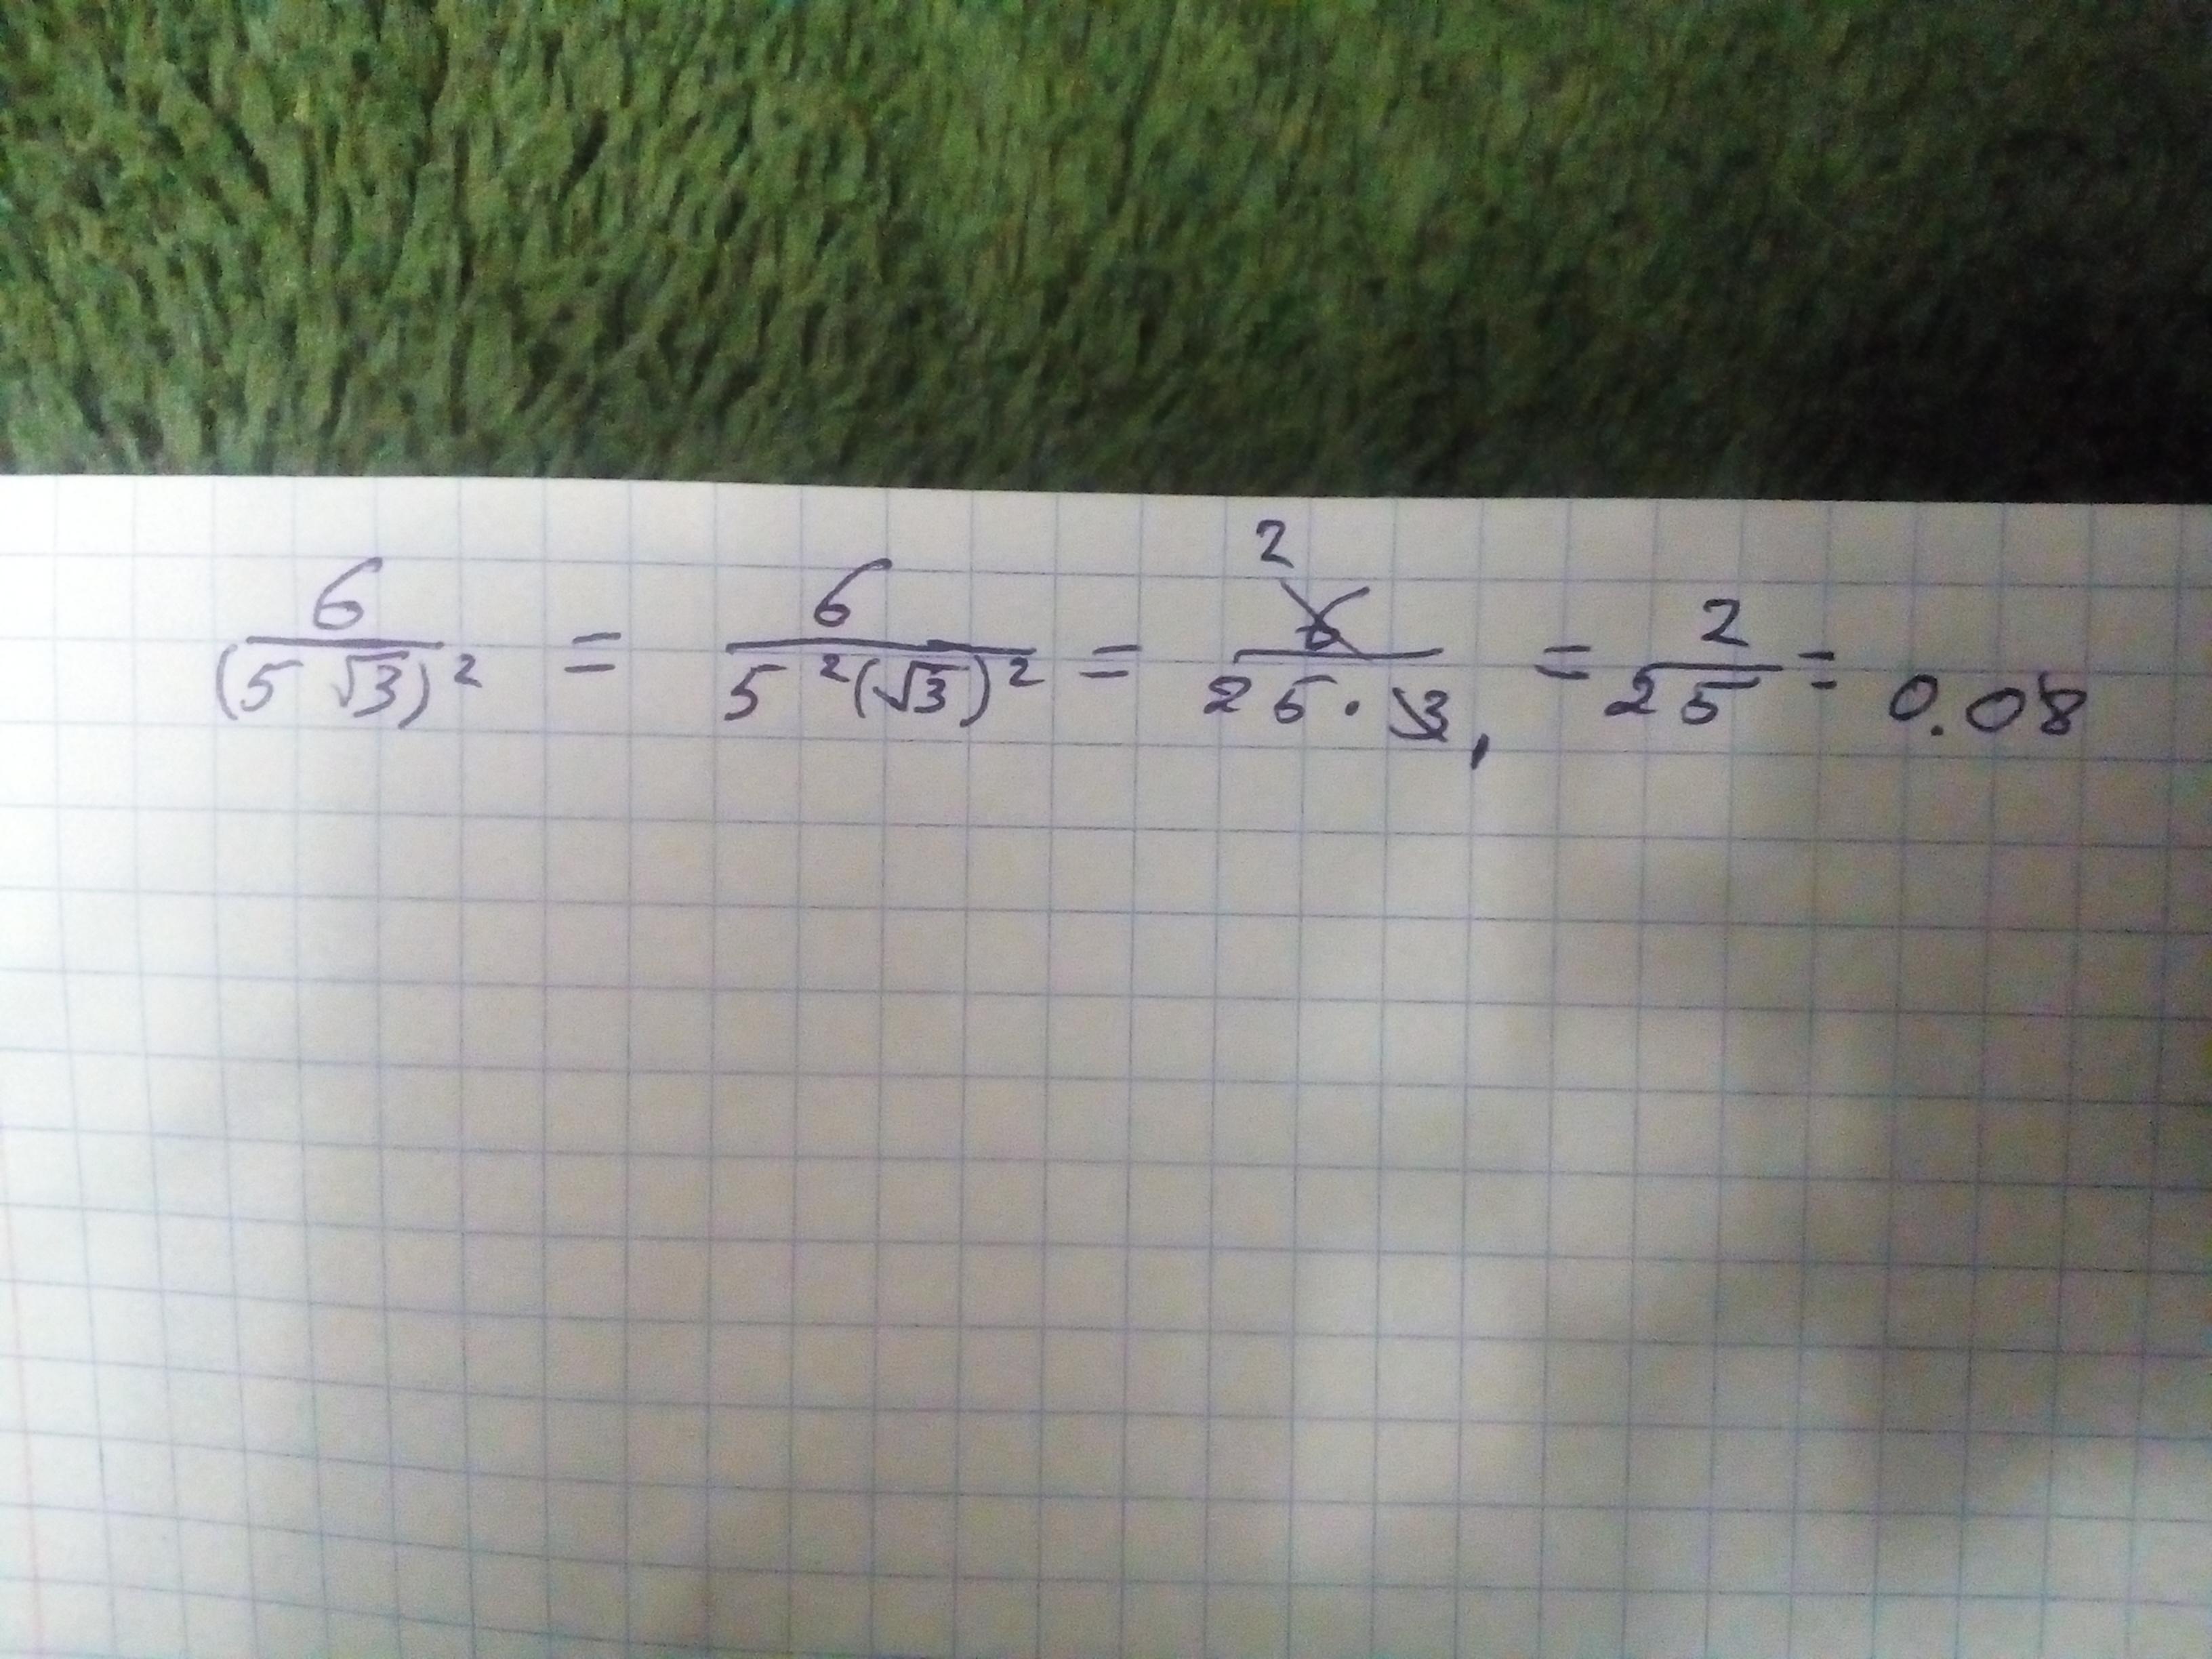 6/(5√3)² = 6/5²(√3)² = 6²/25·3₁ = 2/25 = 0.08